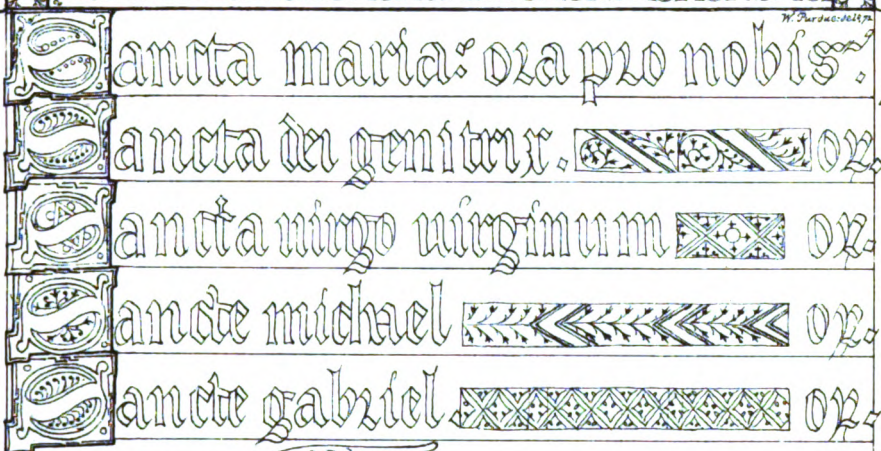 W. Purdue: del
Sancta maria: ora pro nobis.
Sancta dei genitrix. or.
Sancta uirgo uirginum or.
Sancte michael or.
Sancte gabriel. or.